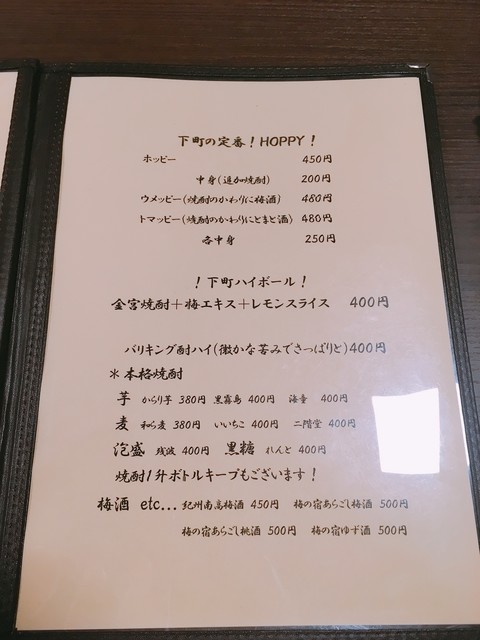 下町の定番！HOPPY！
ホッピー 450円
中身(追加焼酎) 200円
ウメッピー(焼酎のかわりに梅酒) 480円
トマッピー(焼酎のかわりにとまと酒) 480円
各中身 250円
！下町ハイボール！
金宮焼酎＋梅エキス＋レモンスライス 400円
バリキング酎ハイ(微かな苦みでさっぱりと)400円
＊本格焼酎
芋 からり芋 380円 黒霧島 400円 海童 400円
麦 和ら麦 380円 いいちこ 400円 二階堂 400円
泡盛 残波 400円 黒糖 れんと 400円
焼酎1升ボトルキープもございます！
梅酒 etc... 紀州南高梅酒 450円 梅の宿あらごし梅酒 500円
梅の宿あらごし桃酒 500円 梅の宿ゆず酒 500円